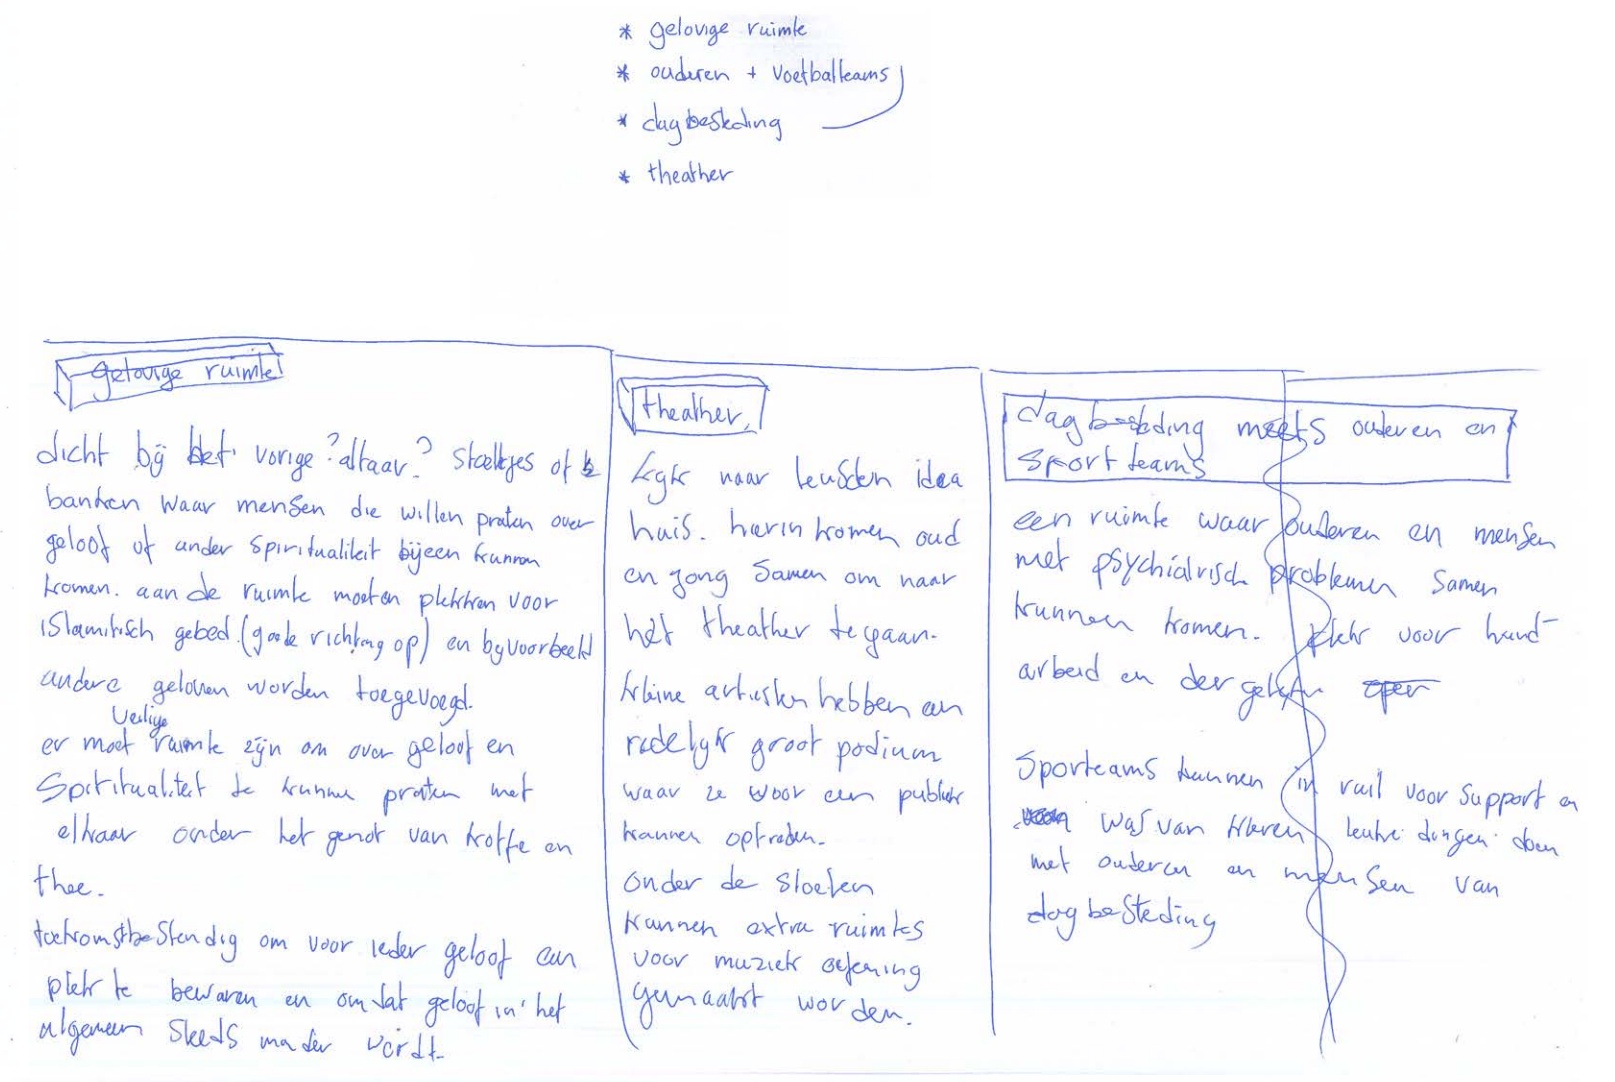 * gelovige ruimte
* ouderen + voetbalteams
* dagbesteding
* theather
gelovige ruimte
dicht bij het vorige ?altaar? stoeltjes of
banken waar mensen die willen praten over
geloof of ander spiritualiteit bijeen kunnen
komen. aan de ruimte moeten plekken voor
islamitisch gebed (goede richting op) en bijvoorbeeld
andere geloven worden toegevoegd.
veilige
er moet ruimte zijn om over geloof en
spiritualiteit te kunnen praten met
elkaar onder het genot van koffie en
thee.
toekomstbestendig om voor ieder geloof een
plek te bewaren en omdat geloof in het
algemeen steeds minder wordt.
theather
kijk naar leusden idea
huis. hierin komen oud
en jong samen om naar
het theather te gaan.
kleine artiesten hebben een
redelijk groot podium
waar ze voor een publiek
kunnen optreden.
onder de stoelen
kunnen extra ruimtes
voor muziek oefening
gemaakt worden.
dagbesteding meets ouderen en
sport teams
een ruimte waar ouderen en mensen
met psychiatrisch problemen samen
kunnen komen. plek voor hand-
arbeid en dergelijke
Sporteams kunnen in ruil voor support en
was van kleren leuke dingen doen
met ouderen en mensen van
dagbesteding